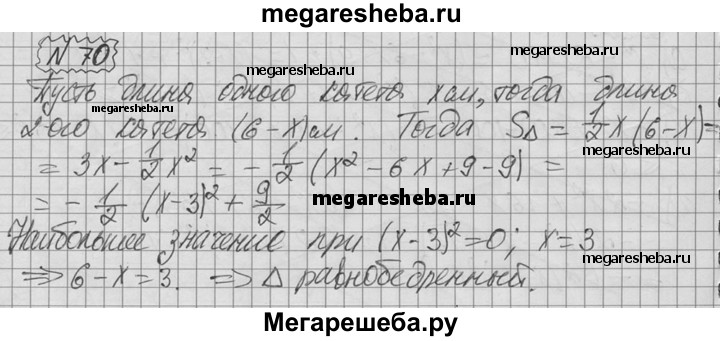 megaresheba.ru
N 70
megaresheba.ru
megaresheba.ru
Пусть длина одного катета x см, тогда длина
megaresheba.ru
2-ого катета (6-x) см. Тогда S△ = 1/2 x (6-x) =
= 3x - 1/2 x² = - 1/2 (x² - 6x + 9 - 9) =
megaresheba.ru
= - 1/2 (x-3)² + 9/2
megaresheba.ru
Наибольшее значение при (x-3)² = 0; x = 3
megaresheba.ru
megaresheba.ru
⇒ 6 - x = 3. ⇒ △ равнобедренный.
Мегарешеба.ру